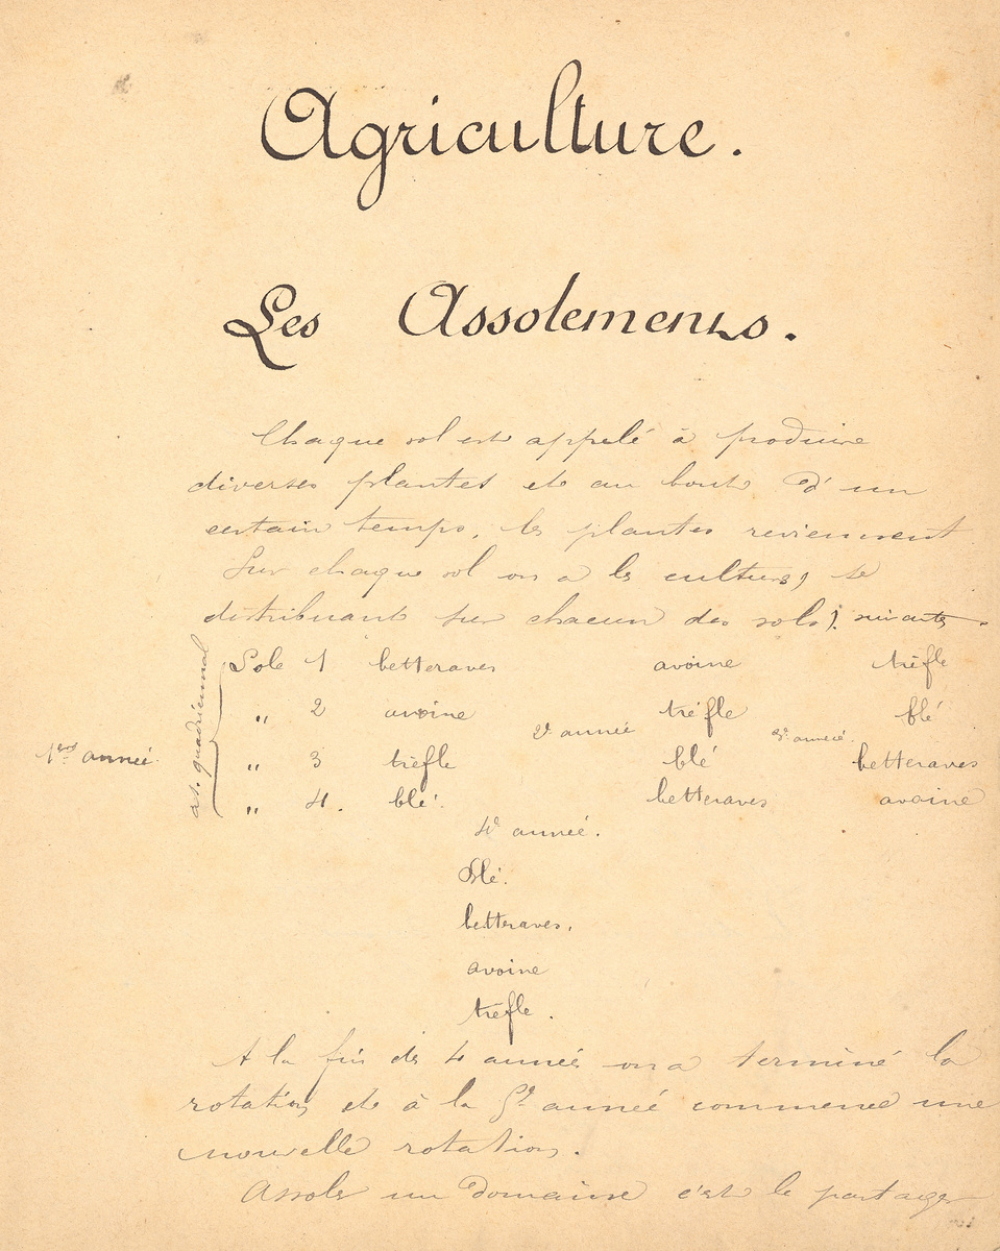 Agriculture.
Les Assolements.
Chaque sol est appelé à produire
diverses plantes et au bout d'un
certain temps, les plantes reviennent
Sur chaque sol on a les cultures, se
distribuant sur chacun des sols, suivantes.
as. quadriennal
1ère année.
Sole 1 betteraves avoine trèfle
" 2 avoine 2e année trèfle 3e année. blé
" 3 trèfle blé betteraves
" 4. blé. betteraves avoine
4e année.
Blé.
betteraves.
avoine
trèfle.
A la fin des 4 années on a terminé la
rotation et à la 5e année commence une
nouvelle rotation.
Assoler un domaine c'est le partager